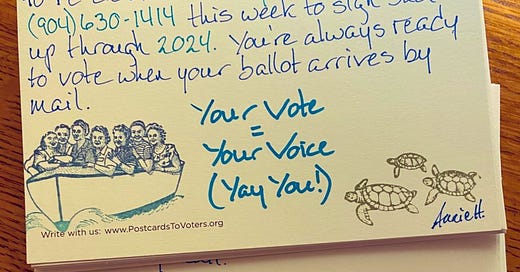 (904) 630-1414 this week to sign
up through 2024. You're always ready
to vote when your ballot arrives by
mail.
Your Vote
=
Your Voice
(Yay You!)
Annie H.
Write with us: www.PostcardsToVoters.org